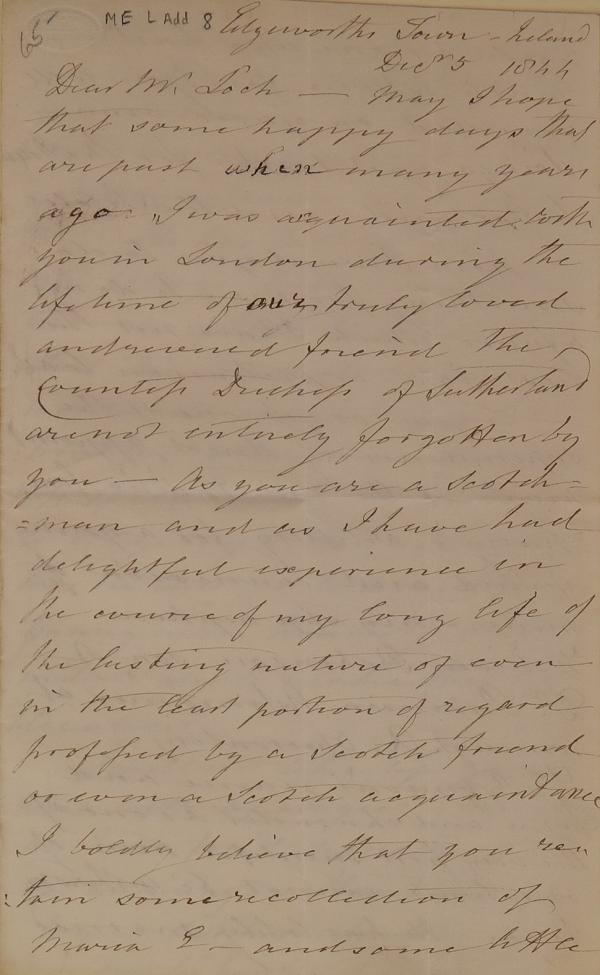 65
ME L Add 8
Edgeworths Town - Ireland
Decr 5 1844
Dear Mr. Loch — May I hope
that some happy days that
are past when many years
ago I was acquainted with
you in London during the
lifetime of our truly loved
and revered friend the
Countess Duchess of Sutherland
are not entirely forgotten by
you — As you are a Scotch=
=man and as I have had
delightful experience in
the course of my long life of
the lasting nature of even
in the least portion of regard
professed by a Scotch friend
or even a Scotch acquaintance
I boldly believe that you re-
:tain some recollection of
Maria E — and some little